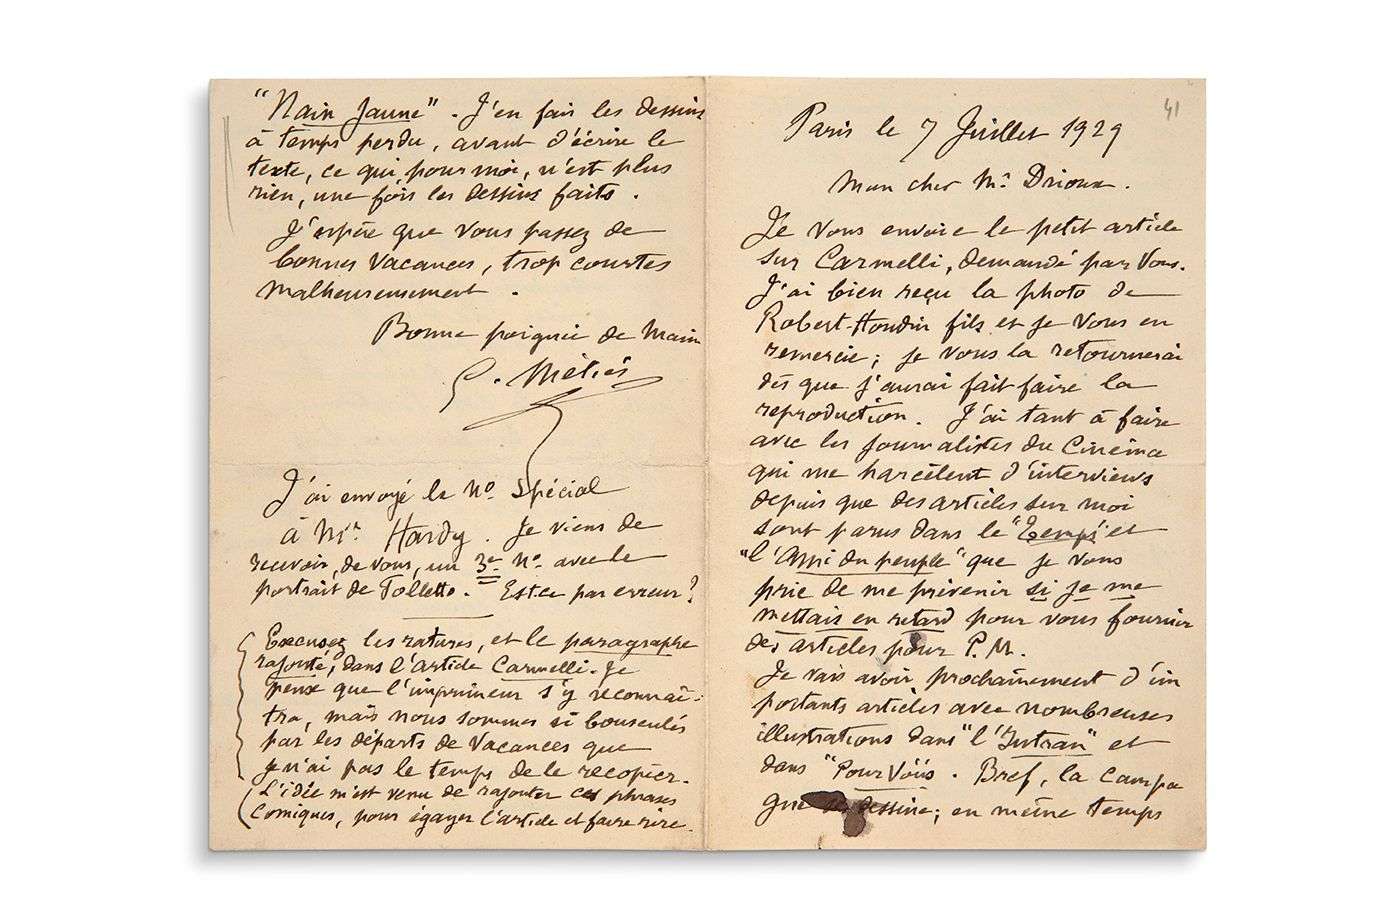 41
Paris le 7 Juillet 1929
Mon cher Mr Drioux.
Je vous envoie le petit article
sur Carmelli, demandé par vous.
J'ai bien reçu la photo de
Robert-Houdin fils et je vous en
remercie; je vous la retournerai
dès que j'aurai fait faire la
reproduction. J'ai tant à faire
avec les journalistes du Cinéma
qui me harcèlent d'interviews
depuis que des articles sur moi
sont parus dans le "Temps" et
"l'Ami du peuple" que je vous
prie de me prévenir si je me
mettais en retard pour vous fournir
des articles pour P.M.
Je vais avoir prochainement d'im
portants articles avec nombreuses
illustrations dans "l'Intran" et
dans "Pour Vous. Bref, la campa
gne se dessine; en même temps
"Nain Jaune". J'en fais les dessins
à temps perdu, avant d'écrire le
texte, ce qui pour moi, n'est plus
rien, une fois les dessins faits.
J'espère que vous passez de
bonnes vacances, trop courtes
malheureusement.
Bonne poignée de main
G. Méliès
J'ai envoyé le No Spécial
à Mr. Hardy. Je viens de
recevoir, de vous, un 3e No. avec le
portrait de Tolletto. Est-ce par erreur?
Excusez les ratures, et le paragraphe
rajouté, dans l'article Carmelli. Je
pense que l'imprimeur s'y reconnaî-
tra, mais nous sommes si bousculés
par les départs de vacances que
je n'ai pas le temps de le recopier.
L'idée m'est venu de rajouter ces phrases
comiques, pour égayer l'article et faire rire.